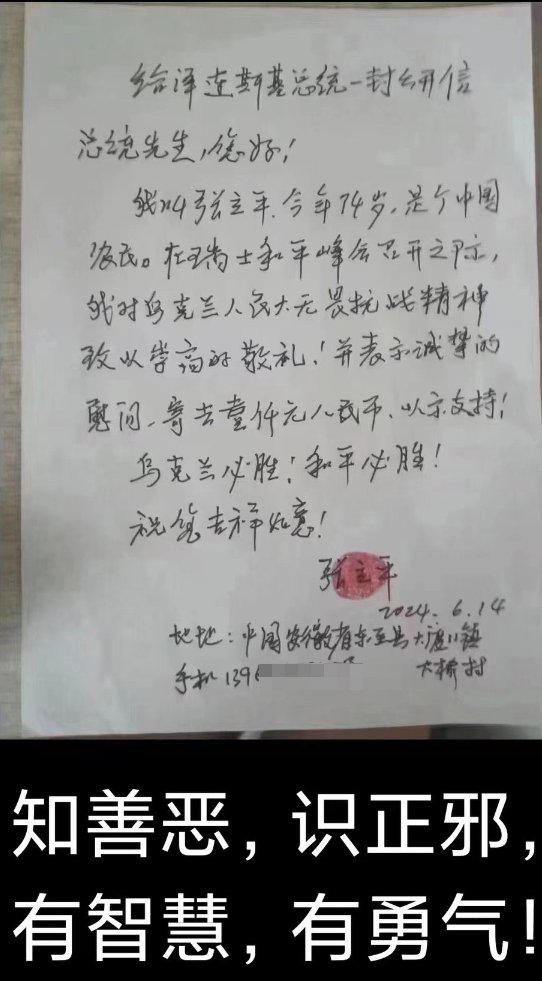 给泽连斯基总统一封公开信
总统先生,您好!
我叫张立平.今年74岁,是个中国
农民。在瑞士和平峰会召开之际,
我对乌克兰人民大无畏抗战精神
致以崇高的敬礼!并表示诚挚的
慰问、寄去壹仟元人民币、以示支持!
乌克兰必胜!和平必胜!
祝您吉祥如意!
张立平
2024.6.14
地址:中国安徽省东至县大渡口镇
大桥村
手机139
知善恶,识正邪,
有智慧,有勇气!